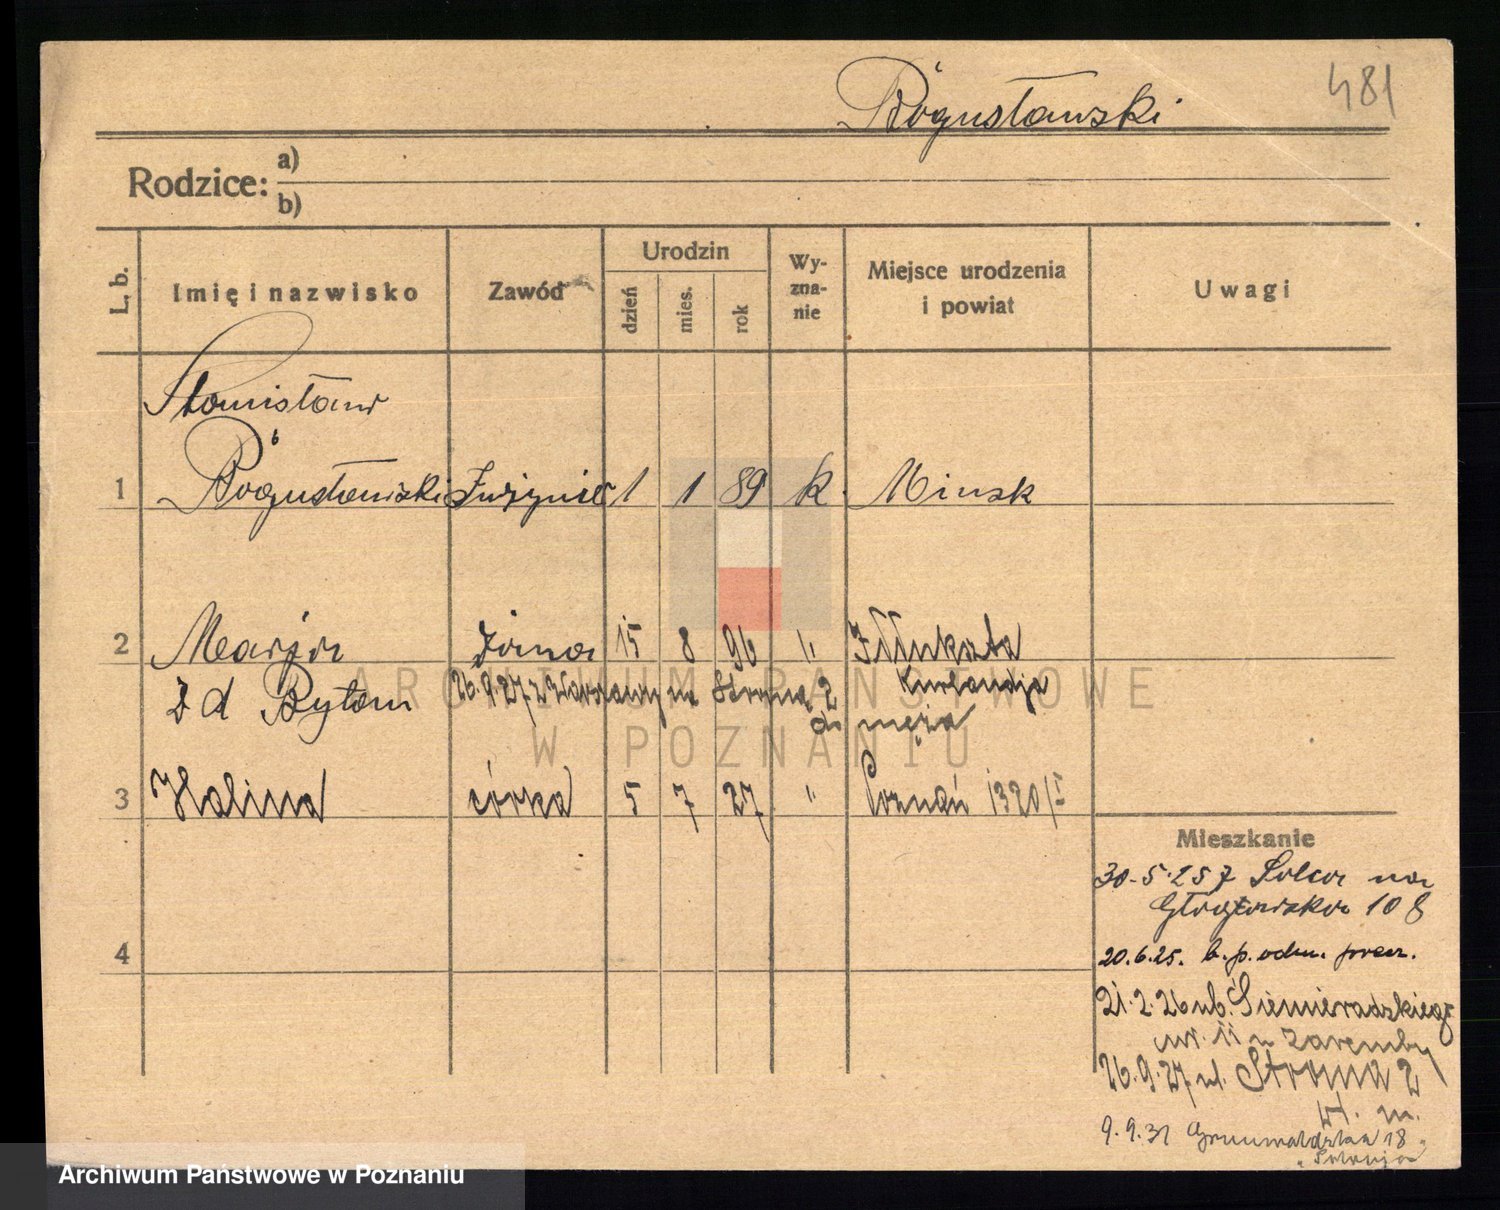 481
Bogusławski
Rodzice: a)
b)
L. b. Imię i nazwisko Zawód Urodzin dzień mies. rok Wy-zna-nie Miejsce urodzenia i powiat Uwagi
Stanisław
1 Bogusławski Inżynier 1 1 89 k. Minsk
2 Marja żona 15 8 96 " Iłłukszta
Kurlandja
z d Bytom 26.9.27. z Warszawy na Stroma 2
do męża
3 Halina córka 5 7 27 " Poznań 1320/I
4
Mieszkanie
30-5-25 z na
Głogowska 108
20.6.25. b. p. odm.
21.2.26 ul. Siemieradzkiego
nr. 11 u Zaremby
26.9.27 ul. Stroma 2
W. m.
9.9.31 Grunwaldzka 18
ARCHIWUM PAŃSTWOWE
W POZNANIU
Archiwum Państwowe w Poznaniu